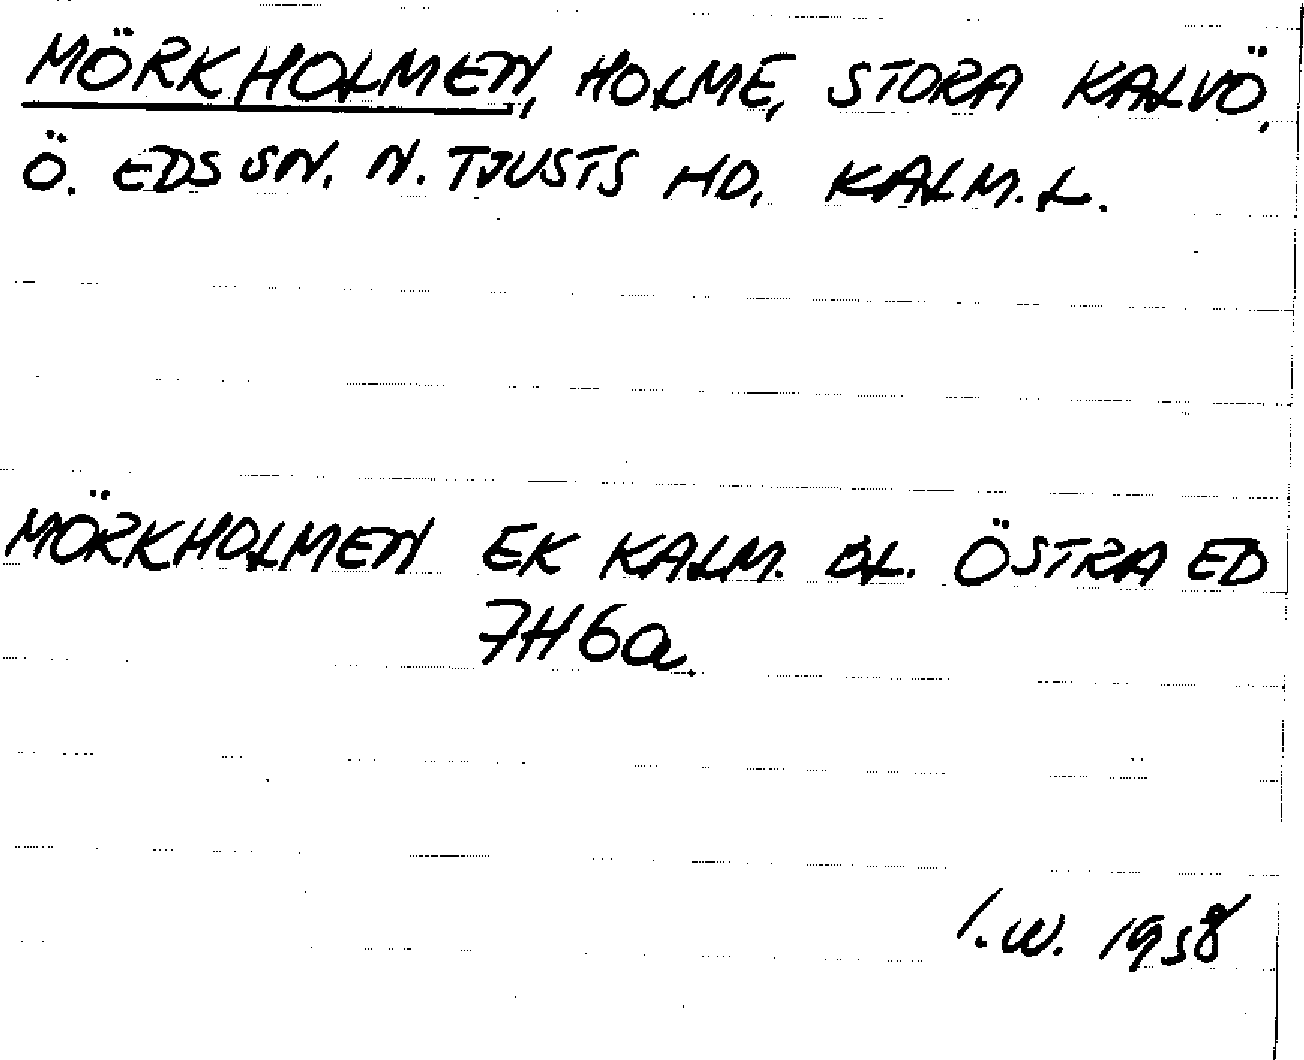 MÖRKHOLMEN, HOLME, STORA KALVÖ,
Ö. EDS SN. N. TJUSTS HD. KALM. L.
MÖRKHOLMEN EK KALM. BL. ÖSTRA ED
7H6a.
I.W. 1958